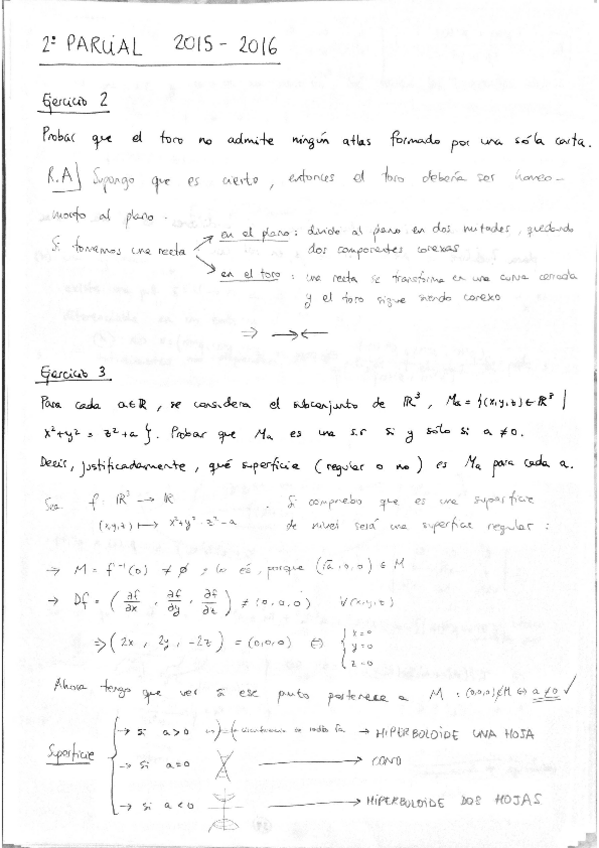 2º PARCIAL 2015-2016
Ejercicio 2
Probar que el toro no admite ningún atlas formado por una sóla carta.
R.A] Supongo que es cierto, entonces el toro debería ser homeo-
morfo al plano.
Si tomamos una recta
en el plano: divido al plano en dos mitades, quedando
dos componentes conexas
en el toro: una recta se transforma en una curva cerrada
y el toro sigue siendo conexo
⇒ →←
Ejercicio 3
Para cada a∈ℝ, se considera el subconjunto de ℝ³, Ma = {(x,y,z)∈ℝ³ |
x²+y² = z²+a}. Probar que Ma es una s.r si y sólo si a≠0.
Decir, justificadamente, qué superficie (regular o no) es Ma para cada a.
Sea f: ℝ³ → ℝ
(x,y,z) ↦ x²+y²-z²-a
Si compruebo que es una superficie
de nivel será una superficie regular:
→ M = f⁻¹(0) ≠ ∅, lo es, porque (√a,0,0) ∈ M
→ Df = (∂f/∂x, ∂f/∂y, ∂f/∂z) ≠ (0,0,0) ∀(x,y,z)
⇒ (2x, 2y, -2z) = (0,0,0) ⇔ { x=0 y=0 z=0
Ahora tengo que ver si ese punto pertenece a M: (0,0,0)∉M ⇔ a≠0 ✓
Superficie
→ si a>0 → HIPERBOLOIDE UNA HOJA
→ si a=0 → CONO
→ si a<0 → HIPERBOLOIDE DOS HOJAS